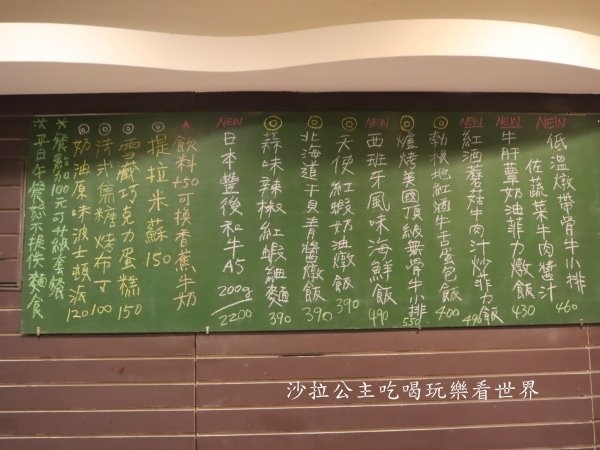 NEW
低溫燉帶骨牛小排
佐蔬菜牛肉醬汁 460
NEW
牛肝蕈奶油菲力燉飯 430
NEW
紅酒磨菇牛肉汁炒菲力飯 490
勃根地紅酒牛舌蛋包飯 400
爐烤美國頂級無骨牛小排 550
NEW
西班牙風味海鮮飯 490
天使紅蝦奶油燉飯 390
北海道干貝青醬燉飯 390
蒜味辣椒紅蝦細麵 390
NEW
日本豐後和牛A5 200g 2200
飲料+50可換香蕉牛奶
提拉米蘇 150
雪藏巧克力蛋糕 150
法式焦糖烤布丁 100
奶油原味波士頓派 120
※餐點加100元可升級套餐
※平日午餐恕不提供麵食
沙拉公主吃喝玩樂看世界